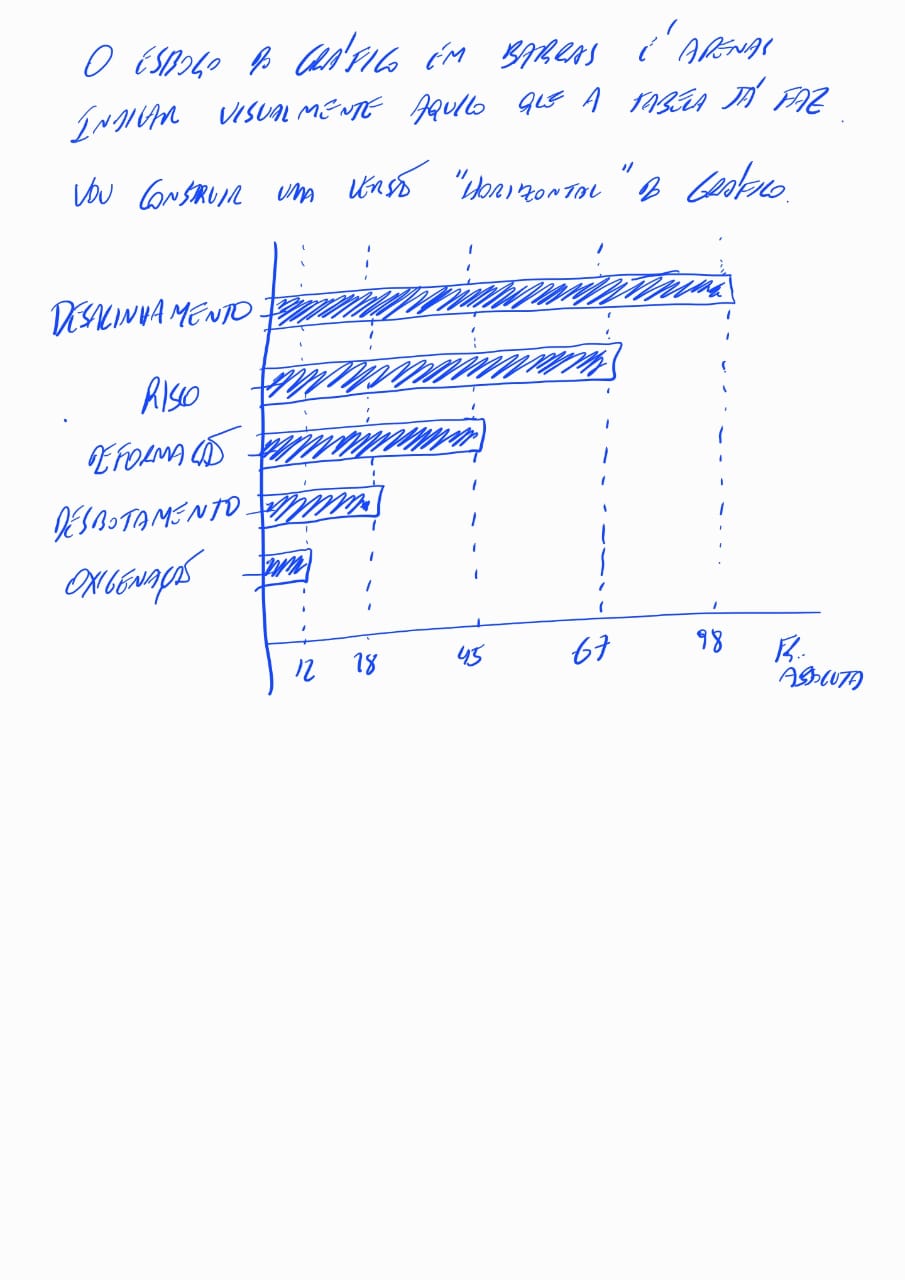 O ESBOÇO DO GRÁFICO EM BARRAS É APENAS
INDICAR VISUALMENTE AQUILO QUE A TABELA JÁ FAZ.
VOU CONSTRUIR UMA VERSÃO "HORIZONTAL" DO GRÁFICO.
DESALINHAMENTO
RISCO
DEFORMAÇÃO
DESBOTAMENTO
OXIGENAÇÃO
12 28 45 67 98 FR.
ABSOLUTA